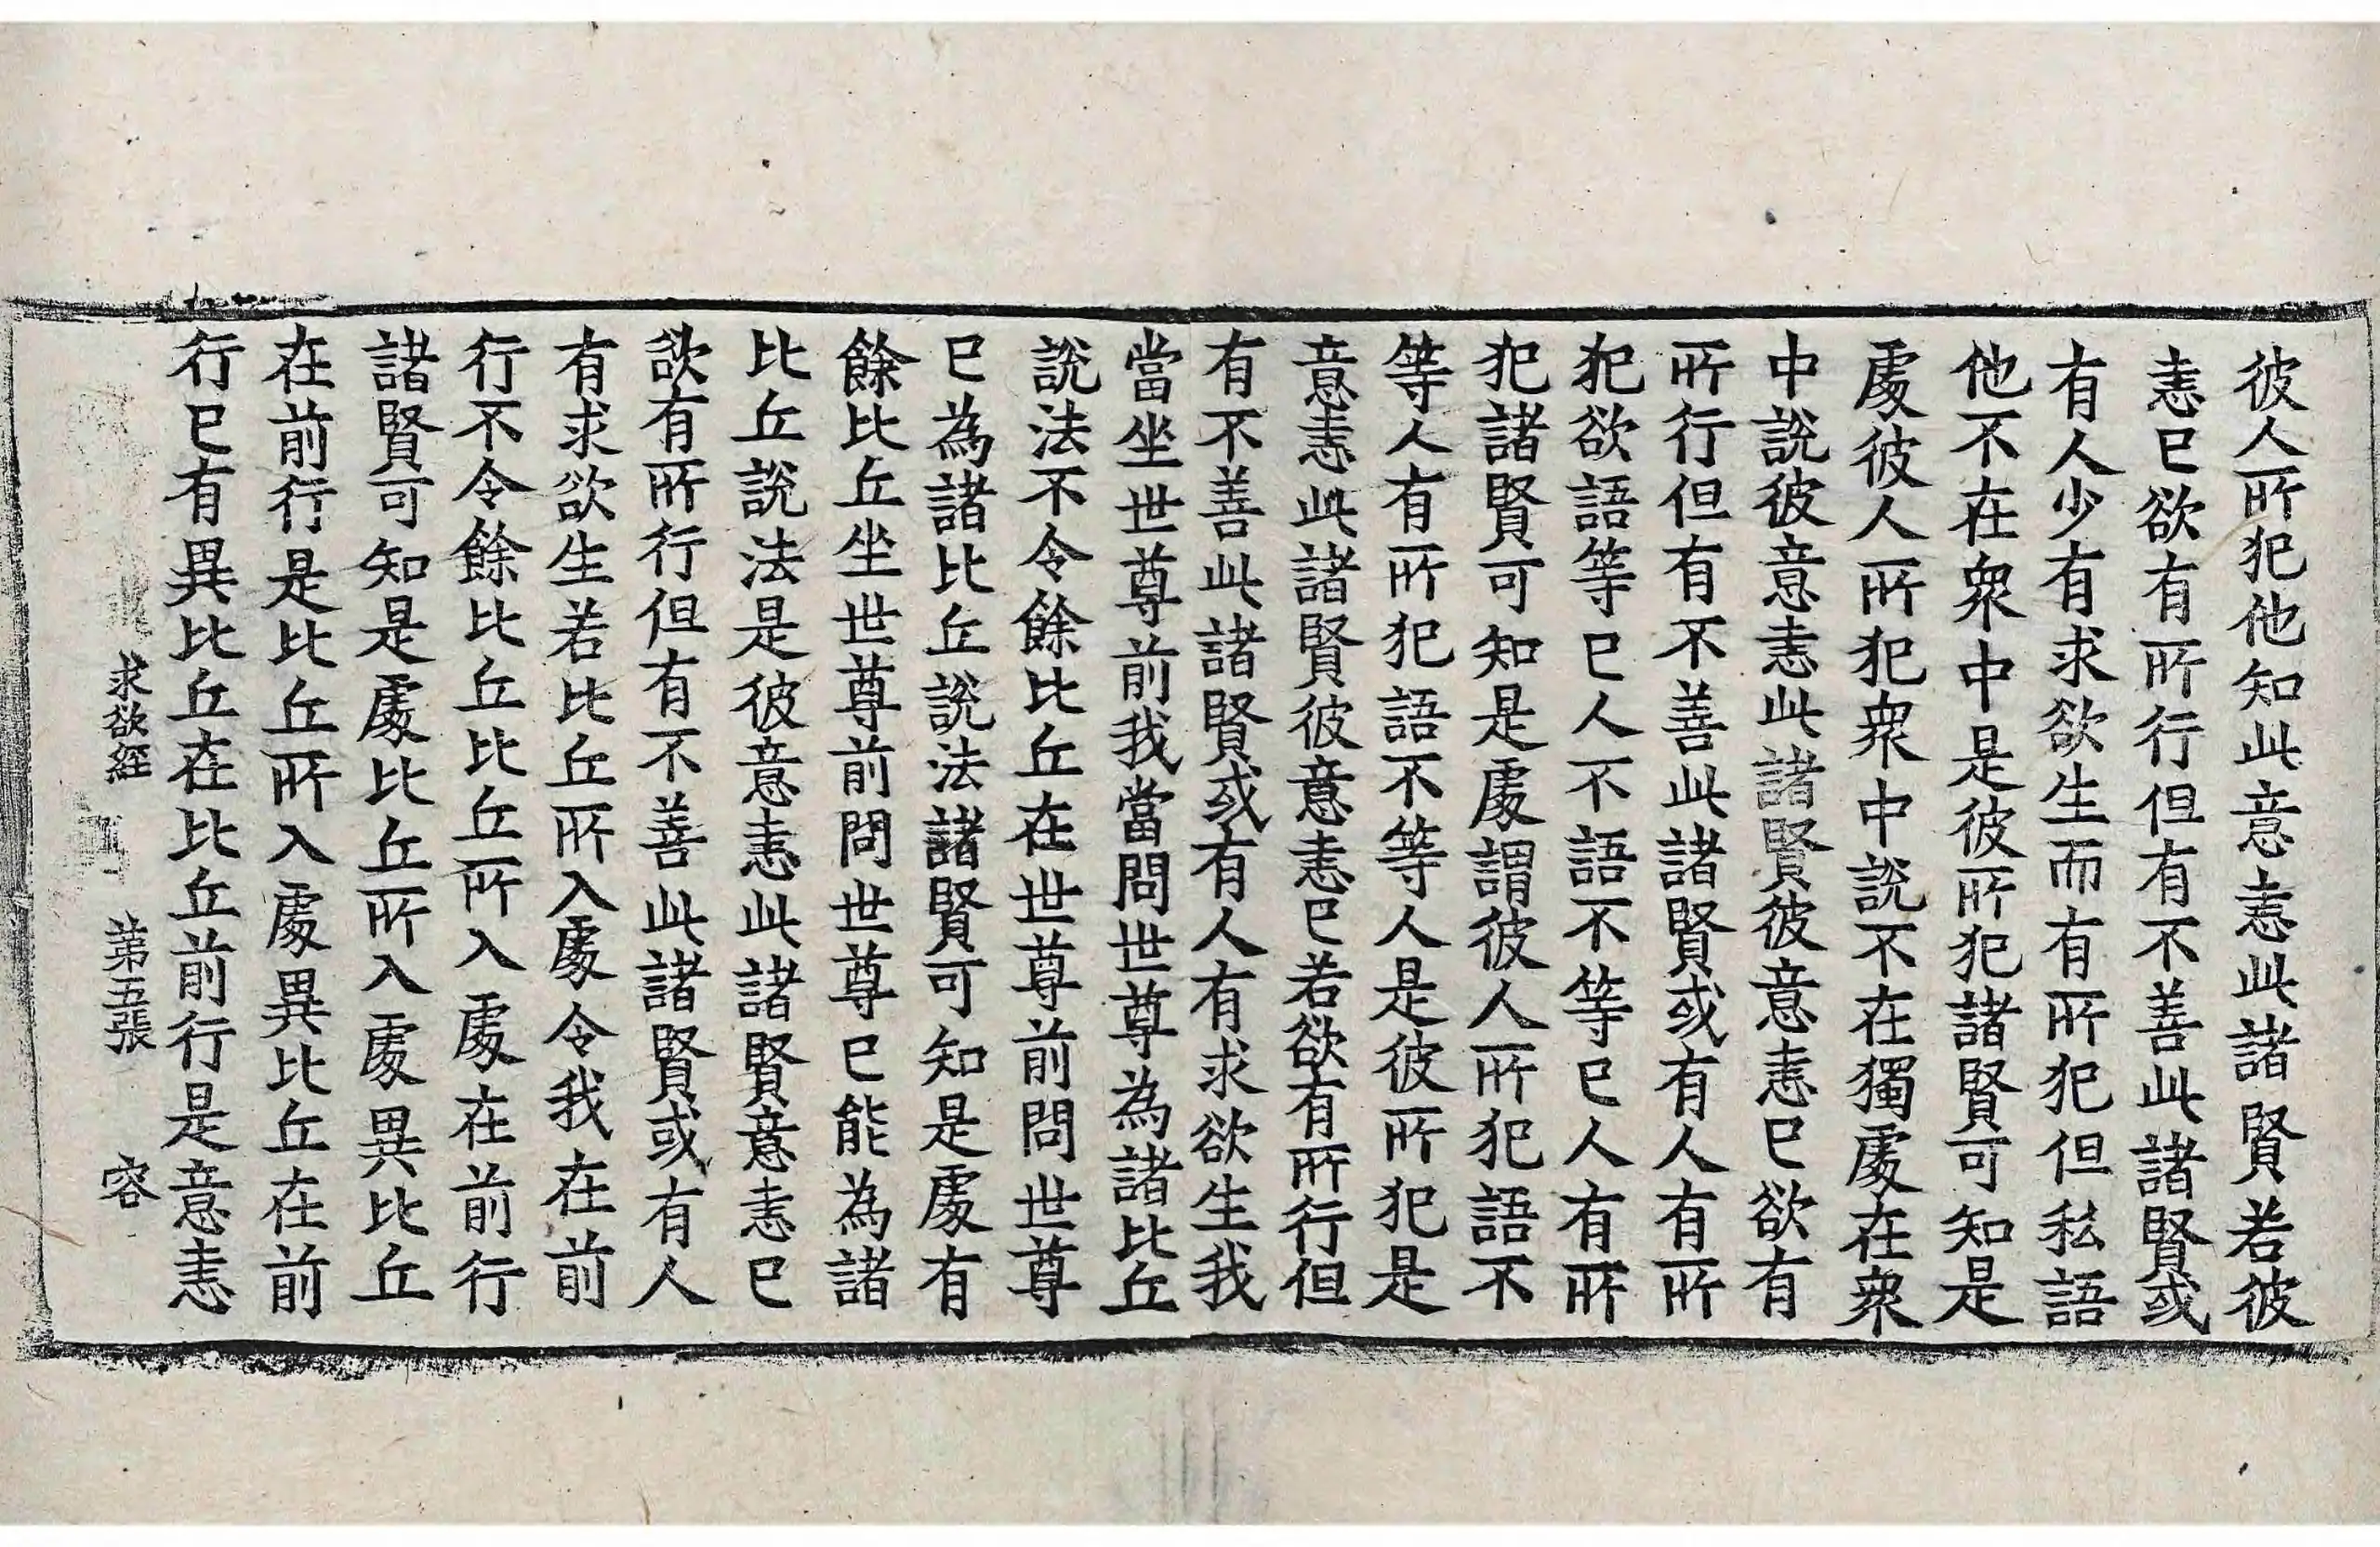 彼人所犯他知此意恚此諸賢若彼
恚已欲有所行但有不善此諸賢或
有人少有求欲生而有所犯但私語
他不在衆中是彼所犯諸賢可知是
處彼人所犯衆中說不在獨處在衆
中說彼意恚此諸賢彼意恚已欲有
所行但有不善此諸賢或有人有所
犯欲語等已人不語不等已人有所
犯諸賢可知是處謂彼人所犯語不
等人有所犯語不等人是彼所犯是
意恚此諸賢彼意恚已若欲有所行但
有不善此諸賢或有人有求欲生我
當坐世尊前我當問世尊為諸比丘
說法不令餘比丘在世尊前問世尊
已為諸比丘說法諸賢可知是處有
餘比丘坐世尊前問世尊已能為諸
比丘說法是彼意恚此諸賢意恚已
欲有所行但有不善此諸賢或有人
有求欲生若比丘所入處令我在前
行不令餘比丘比丘所入處在前行
諸賢可知是處比丘所入處異比丘
在前行是比丘所入處異比丘在前
行已有異比丘在比丘前行是意恚
求欲經 第五張 容